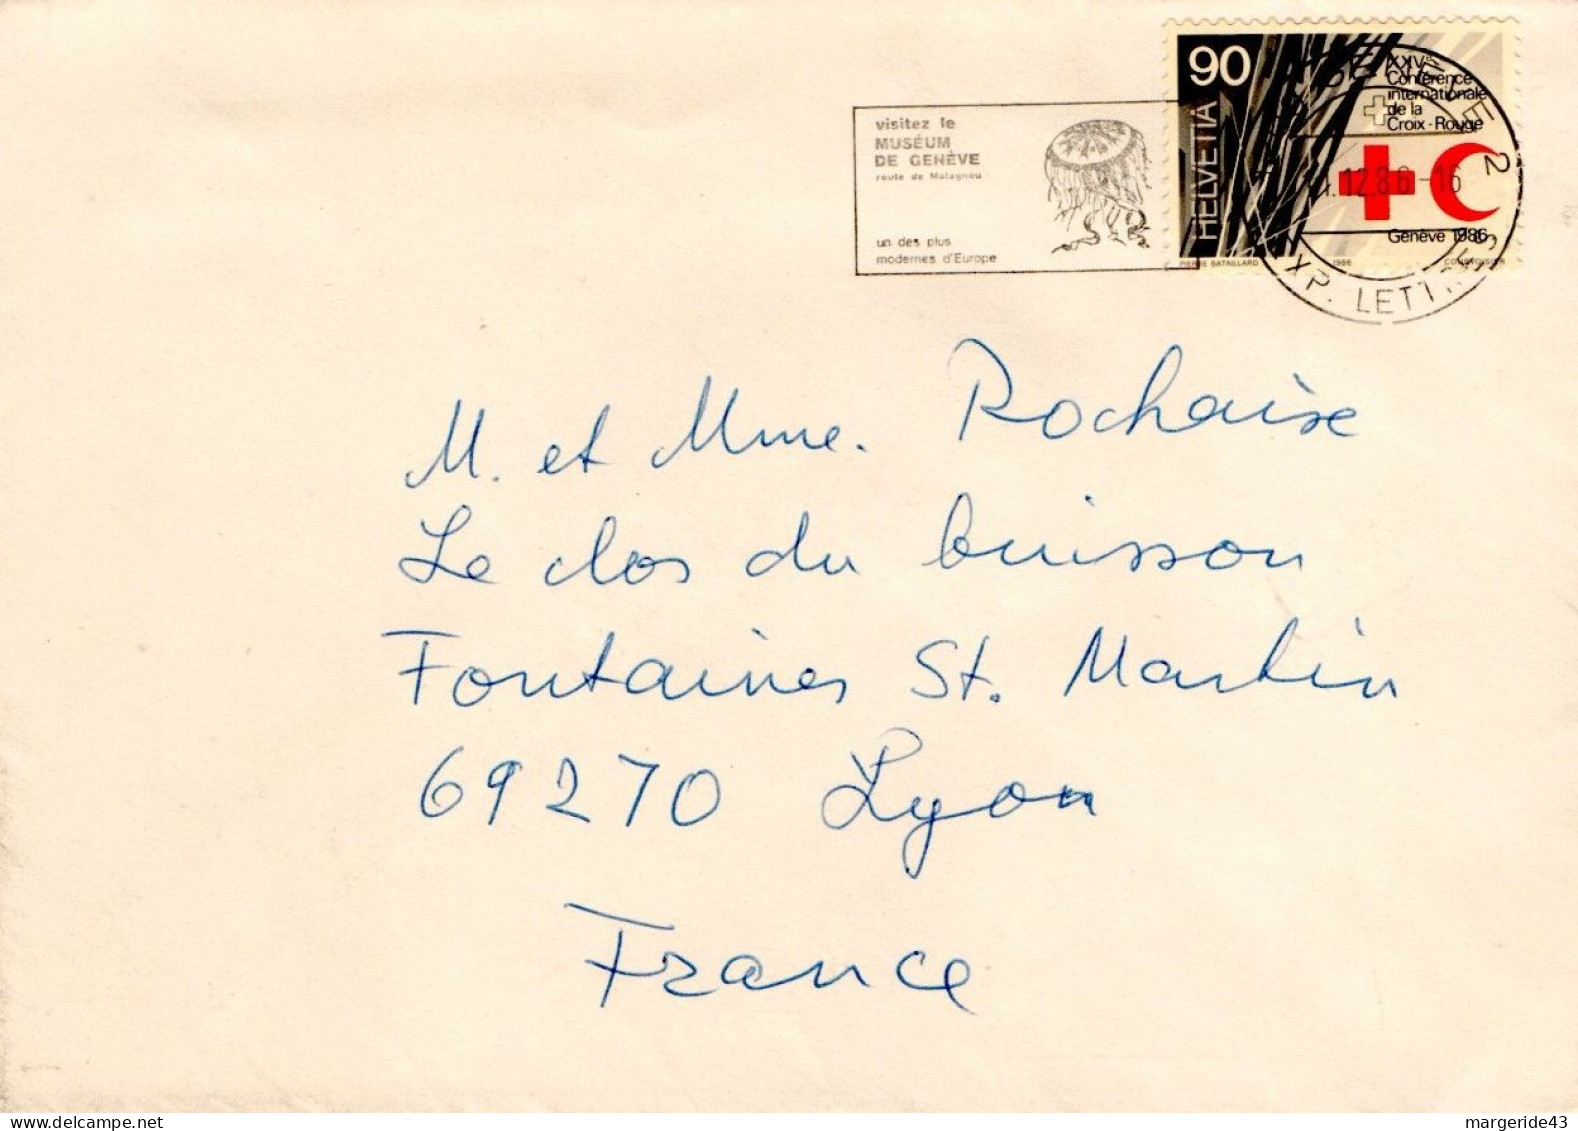 visitez le
MUSÉUM
DE GENÈVE
route de Malagnou
un des plus
modernes d'Europe
90
HELVETIA
Conférence
internationale
de la
Croix-Rouge
Genève 1986
PIERRE BATAILLARD 1986 COURVOISIER
GENEVE 2
.12.86-16
EXP. LETTRES
M. et Mme. Rochaise
Le clos du buisson
Fontaines St. Martin
69270 Lyon
France
www.delcampe.net
margeride43